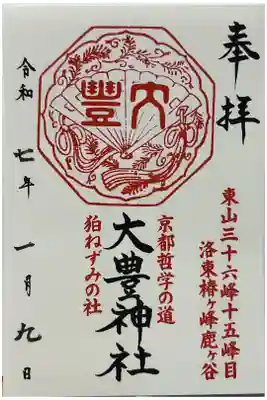 奉拝
東山三十六峰十五峰目
洛東椿ヶ峰鹿ヶ谷
大豊
京都哲学の道
大豊神社
狛ねずみの社
令和七年一月九日